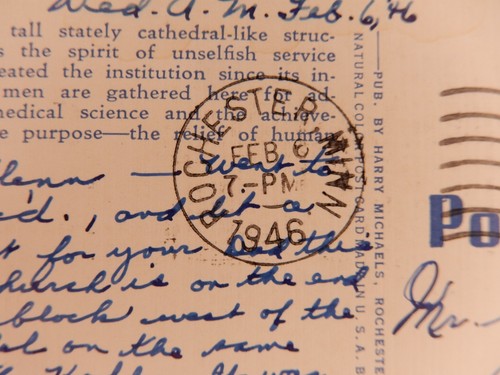 Wed. A. M. Feb. 6, '46
tall stately cathedral-like struc-
s the spirit of unselfish service
eated the institution since its in-
men are gathered here for ad-
medical science and the achieve-
e purpose—the relief of human
ROCHESTER, MINN
FEB 6
7-PM
1946
enn — went to
d., and let a
t for your and this
church is on the end
block west of the
el on the same
PUB. BY HARRY MICHAELS, ROCHESTE
NATURAL COLOR POSTCARD MADE IN U. S. A. B
Po
Mr.